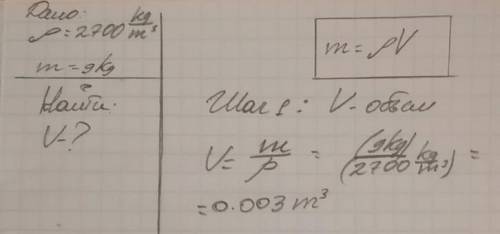 Дано:
ρ = 2700 kg/m³
m = 9kg
Найти:
V-?
m = ρV
Шаг 1: V-объем
V = m/ρ = (9kg)/(2700 kg/m³) =
= 0.003 m³